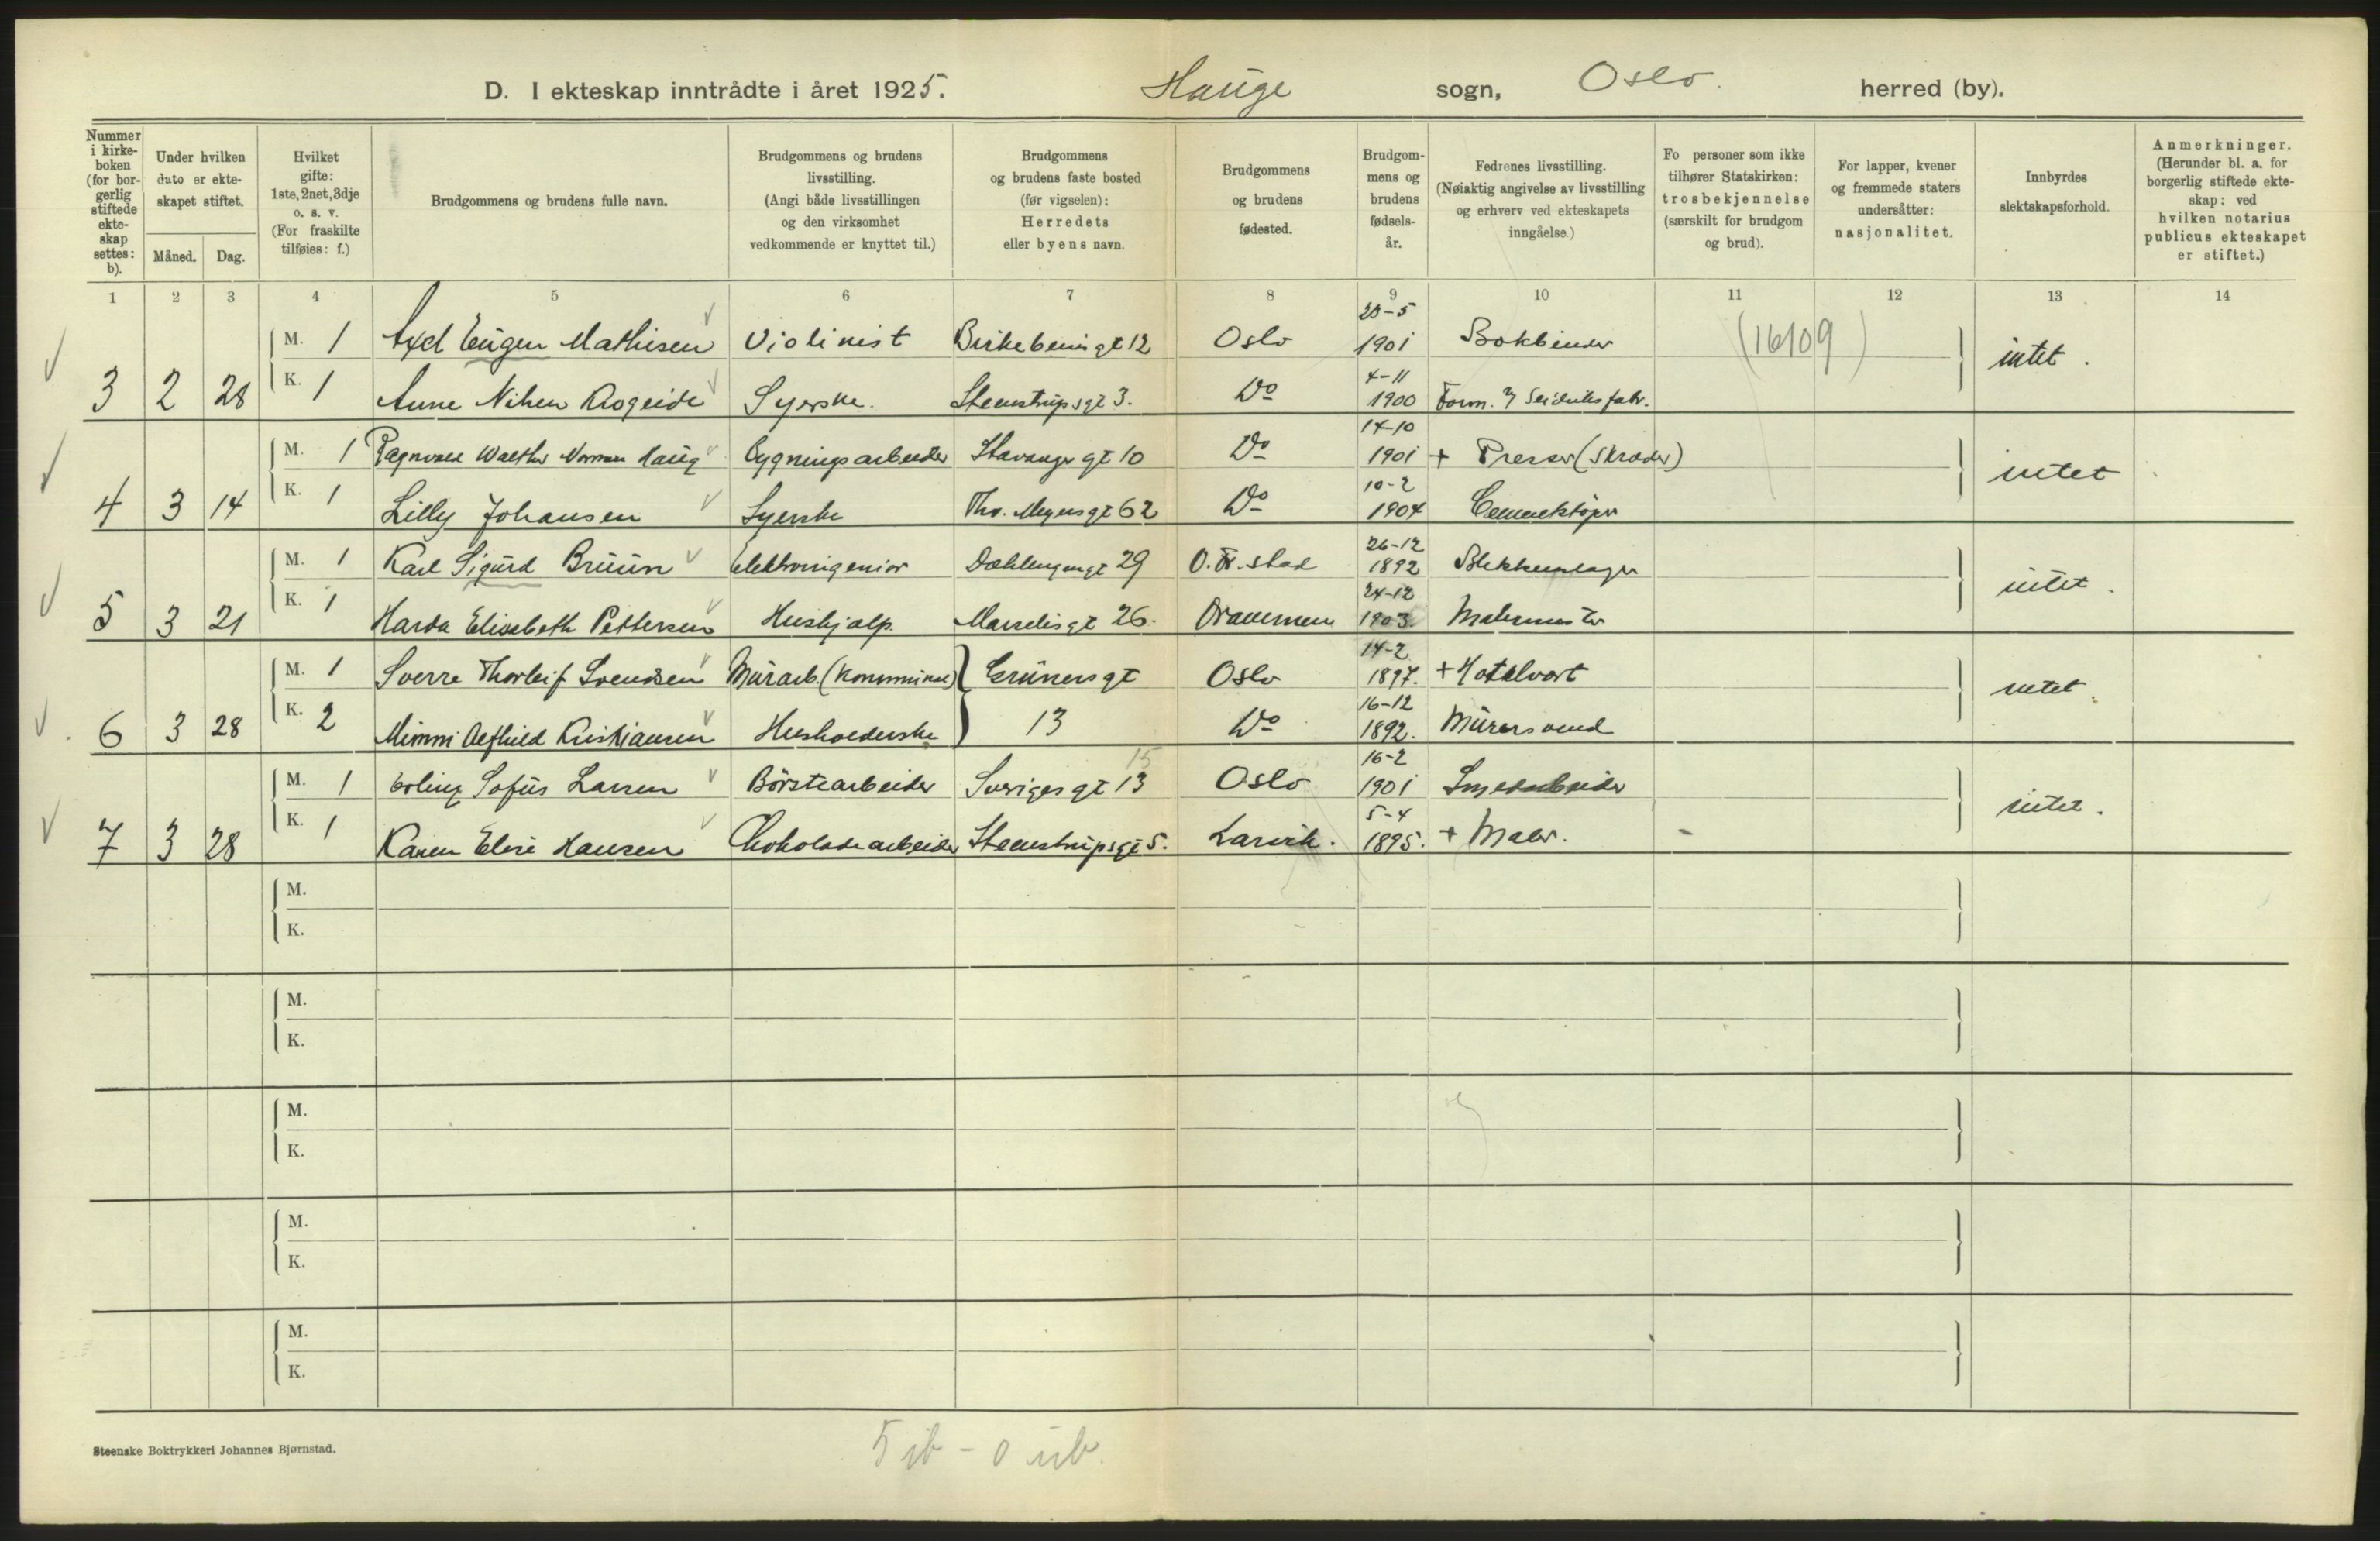 D. I ekteskap inntrådte i året 1925. Hauge sogn, Oslo. herred (by).
Nummer i kirkeboken (for borgerlig stiftede ekteskap settes: b).
Under hvilken dato er ekteskapet stiftet.
Måned. Dag.
Hvilket gifte: 1ste, 2net, 3dje o. s. v. (For fraskilte tilføies: f.)
Brudgommens og brudens fulle navn.
Brudgommens og brudens livsstilling. (Angi både livsstillingen og den virksomhet vedkommende er knyttet til.)
Brudgommens og brudens faste bosted (før vigselen): Herredets eller byens navn.
Brudgommens og brudens fødested.
Brudgommens og brudens fødselsår.
Fedrenes livsstilling. (Nøiaktig angivelse av livsstilling og erhverv ved ekteskapets inngåelse.)
Fo personer som ikke tilhører Statskirken: trosbekjennelse (særskilt for brudgom og brud).
For lapper, kvener og fremmede staters undersåtter: nasjonalitet.
Innbyrdes slektskapsforhold.
Anmerkninger. (Herunder bl. a. for borgerlig stiftede ekteskap: ved hvilken notarius publicus ekteskapet er stiftet.)
1 2 3 4 5 6 7 8 9 10 11 12 13 14
M. 1 Axel Eugen Mathisen Violinist Birkebeinigt 12 Oslo 20-5 1901 Bokbinder (16109) intet.
3 2 28 K. 1 Anne Syerske. Steenstrupsgt 3. Do 4-11 1900 Form.
M. 1 Ragnvald Walther Norman Haug Bygningsarbeider Stavangergt 10 Do 14-10 1901 + Presser (Skræder) intet
4 3 14 K. 1 Lilly Johansen Syerske Thv. Meyersgt 62 Do 10-2 1904
M. 1 Karl Sigurd Bruun Elektroingeniør Dæhlengengt 29 O. Fr. stad 26-12 1892 Blikkenslager intet.
5 3 21 K. 1 Harda Elisabeth Pettersen Hushjælp. Marselisgt 26. Drammen 24-12 1903. Malermester
M. 1 Sverre Thorleif Svendsen Murarb. (Kommunal) Grünersgt Oslo 14-2 1897. + Hotelvært intet.
6 3 28 K. 2 Mimmi Alfhild Kristiansen Husholderske 13 Do 16-12 1892. Murersvend
M. 1 Erling Sofus Larsen Børstearbeider Sverigesgt 13 15 Oslo 16-2 1901 Smedarbeider intet.
7 3 28 K. 1 Karen Elise Hansen Chokoladearbeider Steenstrupsgt 5. Larvik. 5-4 1895. + Maler.
M.
K.
M.
K.
M.
K.
M.
K.
M.
K.
Steenske Boktrykkeri Johannes Bjørnstad.
5 ib - 0 ub.